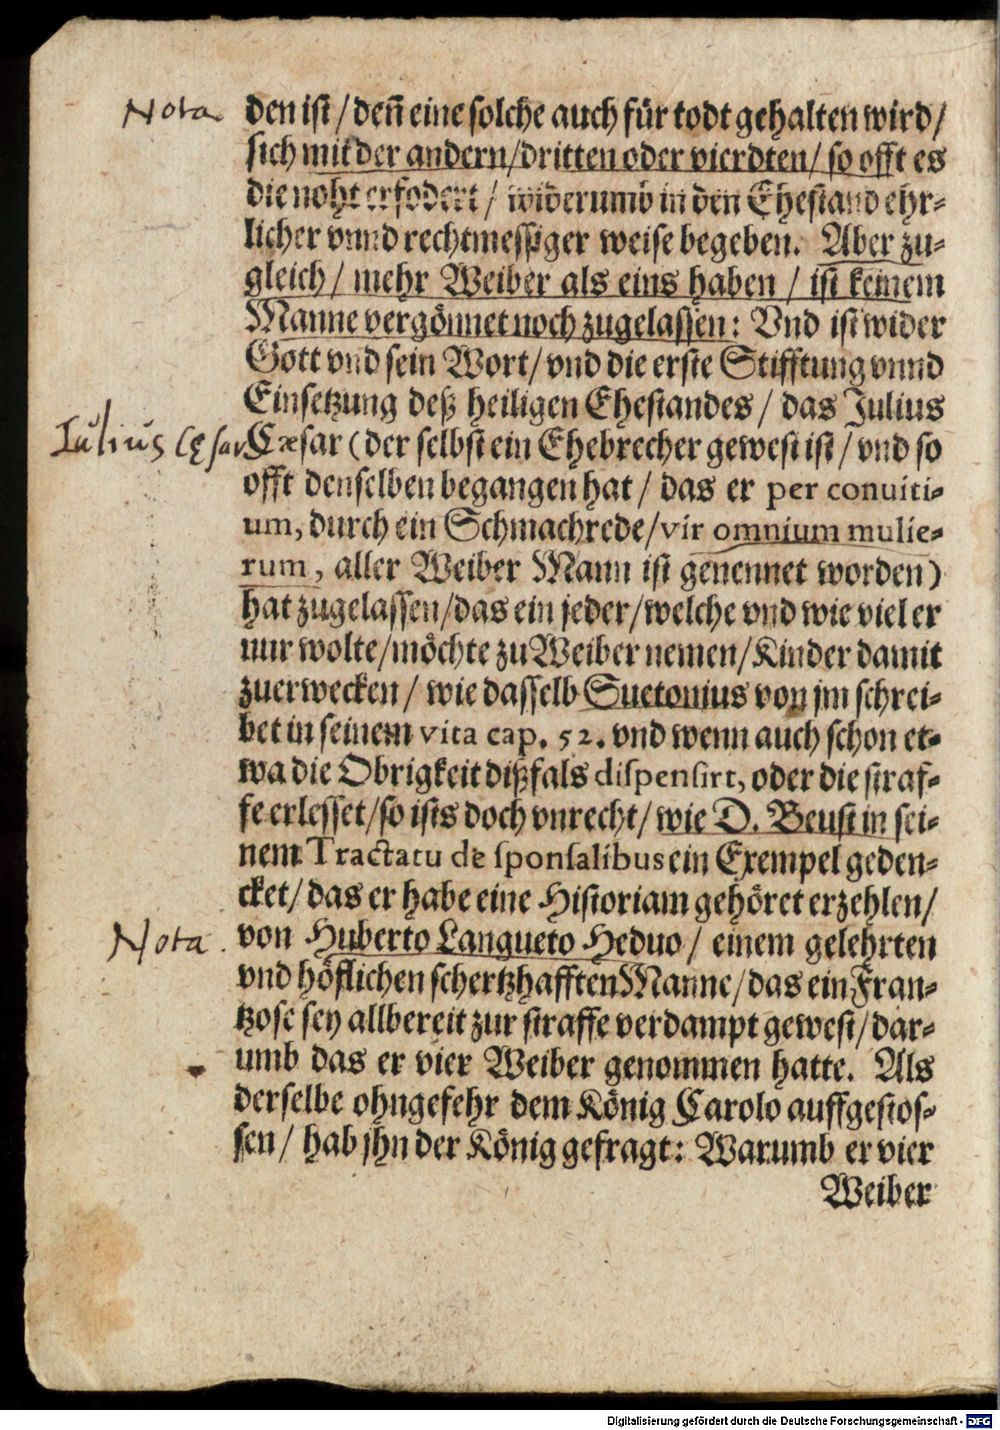 Nota
den ist / deñ eine solche auch für todt gehalten wird /
sich mit der andern / dritten oder vierdten / so offt es
die noht erfodert / widerumb in den Ehestand ehr-
licher vnnd rechtmessiger weise begeben. Aber zu-
gleich / mehr Weiber als eins haben / ist keinem
Manne vergönnet noch zugelassen: Vnd ist wider
Gott vnd sein Wort / vnd die erste Stifftung vnnd
Einsetzung deß heiligen Ehestandes / das Julius
Iulius Cęsar
Cæsar (der selbst ein Ehebrecher gewest ist / vnd so
offt denselben begangen hat / das er per conuiti-
um, durch ein Schmachrede / vir omnium mulie-
rum, aller Weiber Mann ist genennet worden)
hat zugelassen / das ein jeder / welche vnd wie viel er
nur wolte / möchte zu Weiber nemen / Kinder damit
zuerwecken / wie dasselb Suetonius von jm schrei-
bet in seinem vita cap. 52. vnd wenn auch schon et-
wa die Obrigkeit dißfals dispensirt, oder die straf-
fe erlesset / so ists doch vnrecht / wie D. Beust in sei-
nem Tractatu de sponsalibus ein Exempel geden-
cket / das er habe eine Historiam gehöret erzehlen /
Nota
von Huberto Langueto Heduo / einem gelehrten
vnd höflichen schertzhafften Manne / das ein Fran-
tzose sey allbereit zur straffe verdampt gewest / dar-
umb das er vier Weiber genommen hatte. Als
derselbe ohngefehr dem König Carolo auffgestos-
sen / hab jhn der König gefragt: Warumb er vier
Weiber
Digitalisierung gefördert durch die Deutsche Forschungsgemeinschaft - DFG